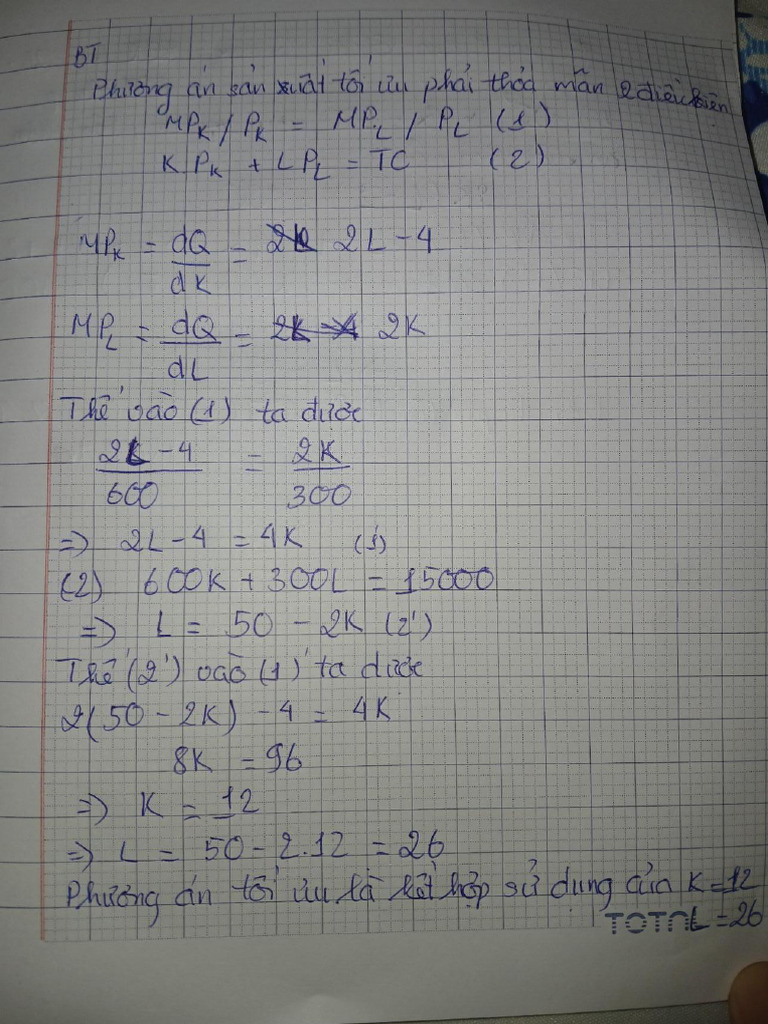 BT
Phương án sản xuất tối ưu phải thỏa mãn 2 điều kiện
MPK / PK = MPL / PL (1)
KPK + LPL = TC (2)
MPK = dQ/dK = 2L - 4
MPL = dQ/dL = 2K
Thế vào (1) ta được
2L - 4 / 600 = 2K / 300
=> 2L - 4 = 4K (1')
(2) 600K + 300L = 15000
=> L = 50 - 2K (2')
Thế (2') vào (1)' ta được
2(50 - 2K) - 4 = 4K
8K = 96
=> K = 12
=> L = 50 - 2.12 = 26
Phương án tối ưu là kết hợp sử dung của K = 12
TOTAL L = 26